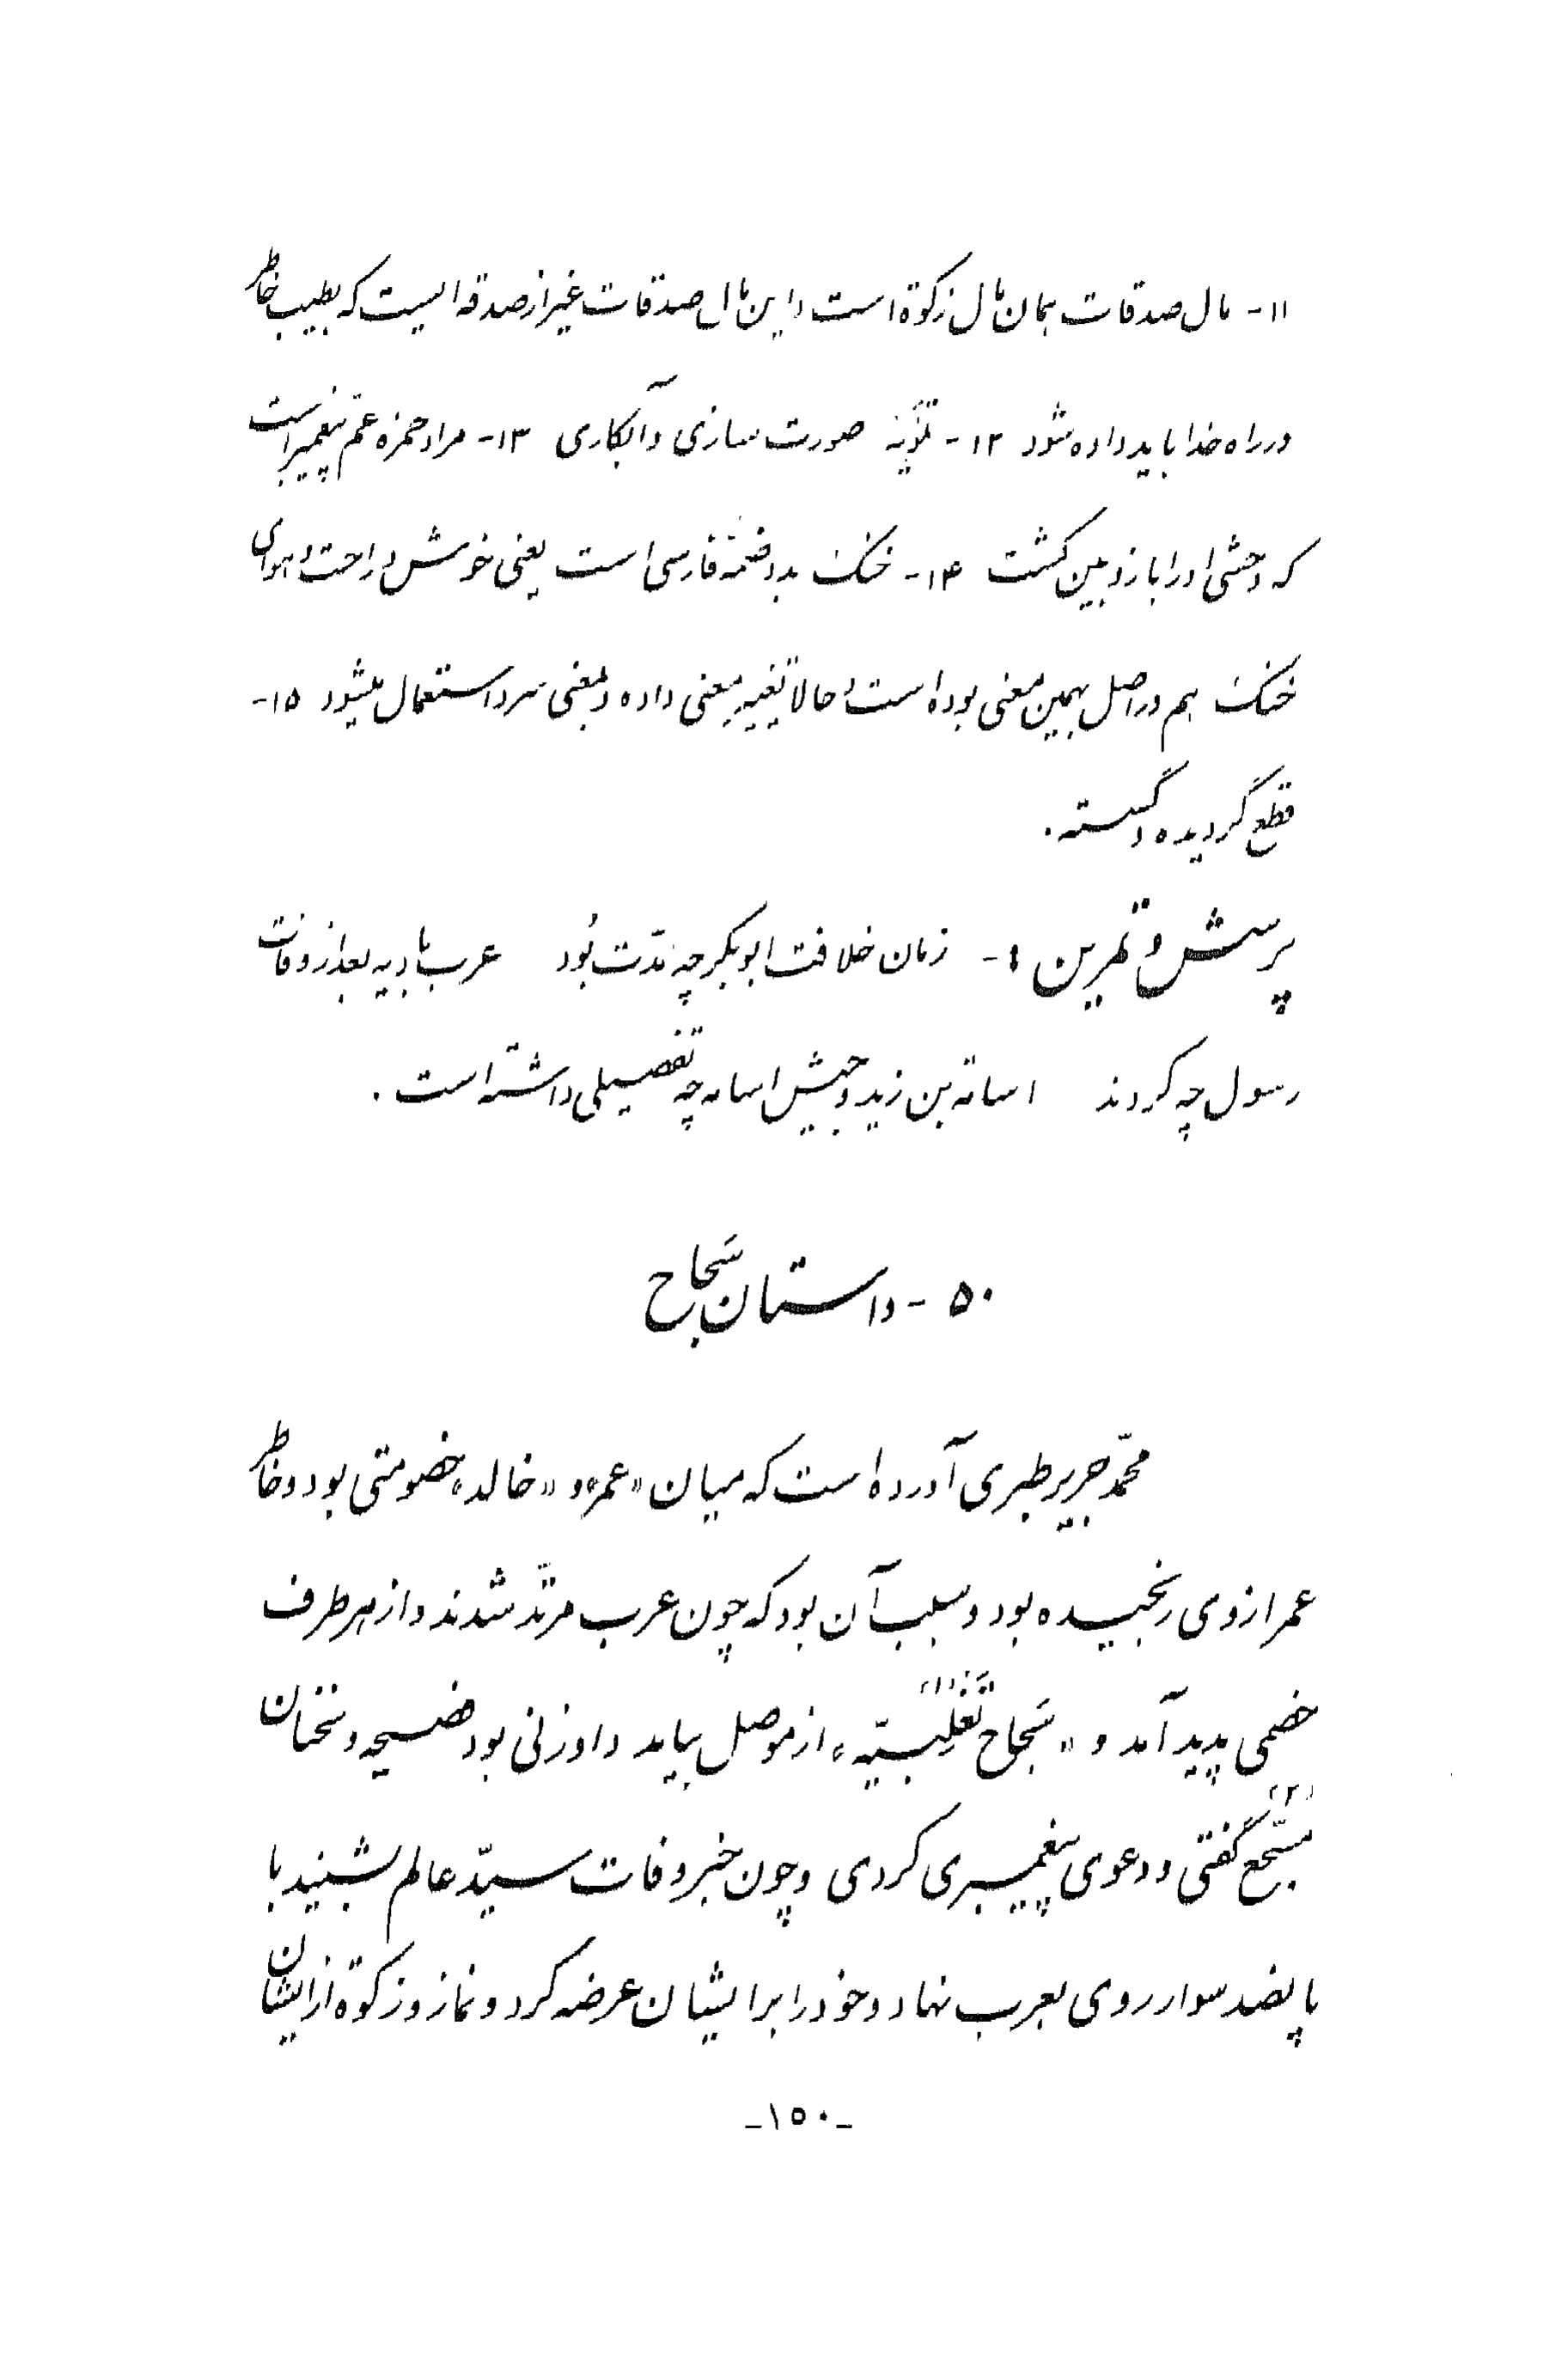 ۱۱- مال صدقات همان مال زکوة است و این مال صدقات غیر از صدقه ایست که بطیب خاطر
در راه خدا باید داده شود ۱۲- تمویه صورت سازی و آبکاری ۱۳- مراد حمزه عمّ پیغمبر است
که وحشی او را با زوبین کشت ۱۴- خنک بدو ضمّه فارسی است یعنی خوش و راحت و هوای
خنک هم در اصل بهمین معنی بوده است و حالا تغییر معنی داده و بمعنی سرد استعمال میشود ۱۵-
قطع گردیده و گسسته .
پرسش و تمرین :- زمان خلافت ابوبکر چه مدّت بُود عرب بادیه بعد از وفات
رسول چه کردند اسامة بن زید و جیش اسامه چه تفصیلی داشته است .
۵۰ - داستان سَجاح
محمّد جریر طبری آورده است که میان «عمر» و «خالد» خصومتی بود و خاطر
عمر از وی رنجیده بود و سبب آن بود که چون عرب مرتدّ شدند و از هر طرف
خصمی پدید آمد و «سَجاح تَغلِبیّه»(۱) از موصل بیامد و او زنی بود فصیحه و سخنان
مسجّع(۲) گفتی و دعوی پیغمبری کردی و چون خبر وفات سیّد عالم بشنید با
پانصد سوار روی بعرب نهاد و خود را بر ایشان عرضه کرد و نماز و زکوة از ایشان
-۱۵۰-